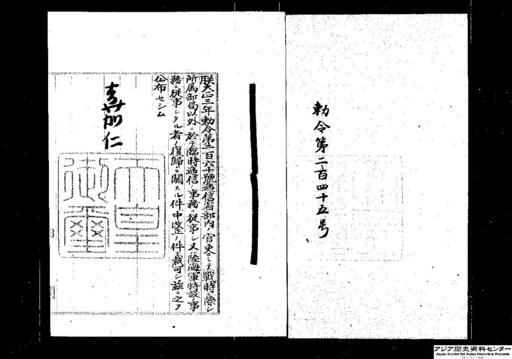 勅令第二百四十五号
朕大正三年勅令第二百六十號逓信省部内ノ官吏ニシテ戰時ニ際シ
所属部局以外ニ於テ臨時通信ノ事務ニ從事シ又ハ陸海軍特設事
務ニ從事シタル者ノ復歸ニ關スル件中改正ノ件ヲ裁可シ茲ニ之ヲ
公布セシム
嘉仁
天皇御璽
アジア歴史資料センター
Japan Center for Asian Historical Records